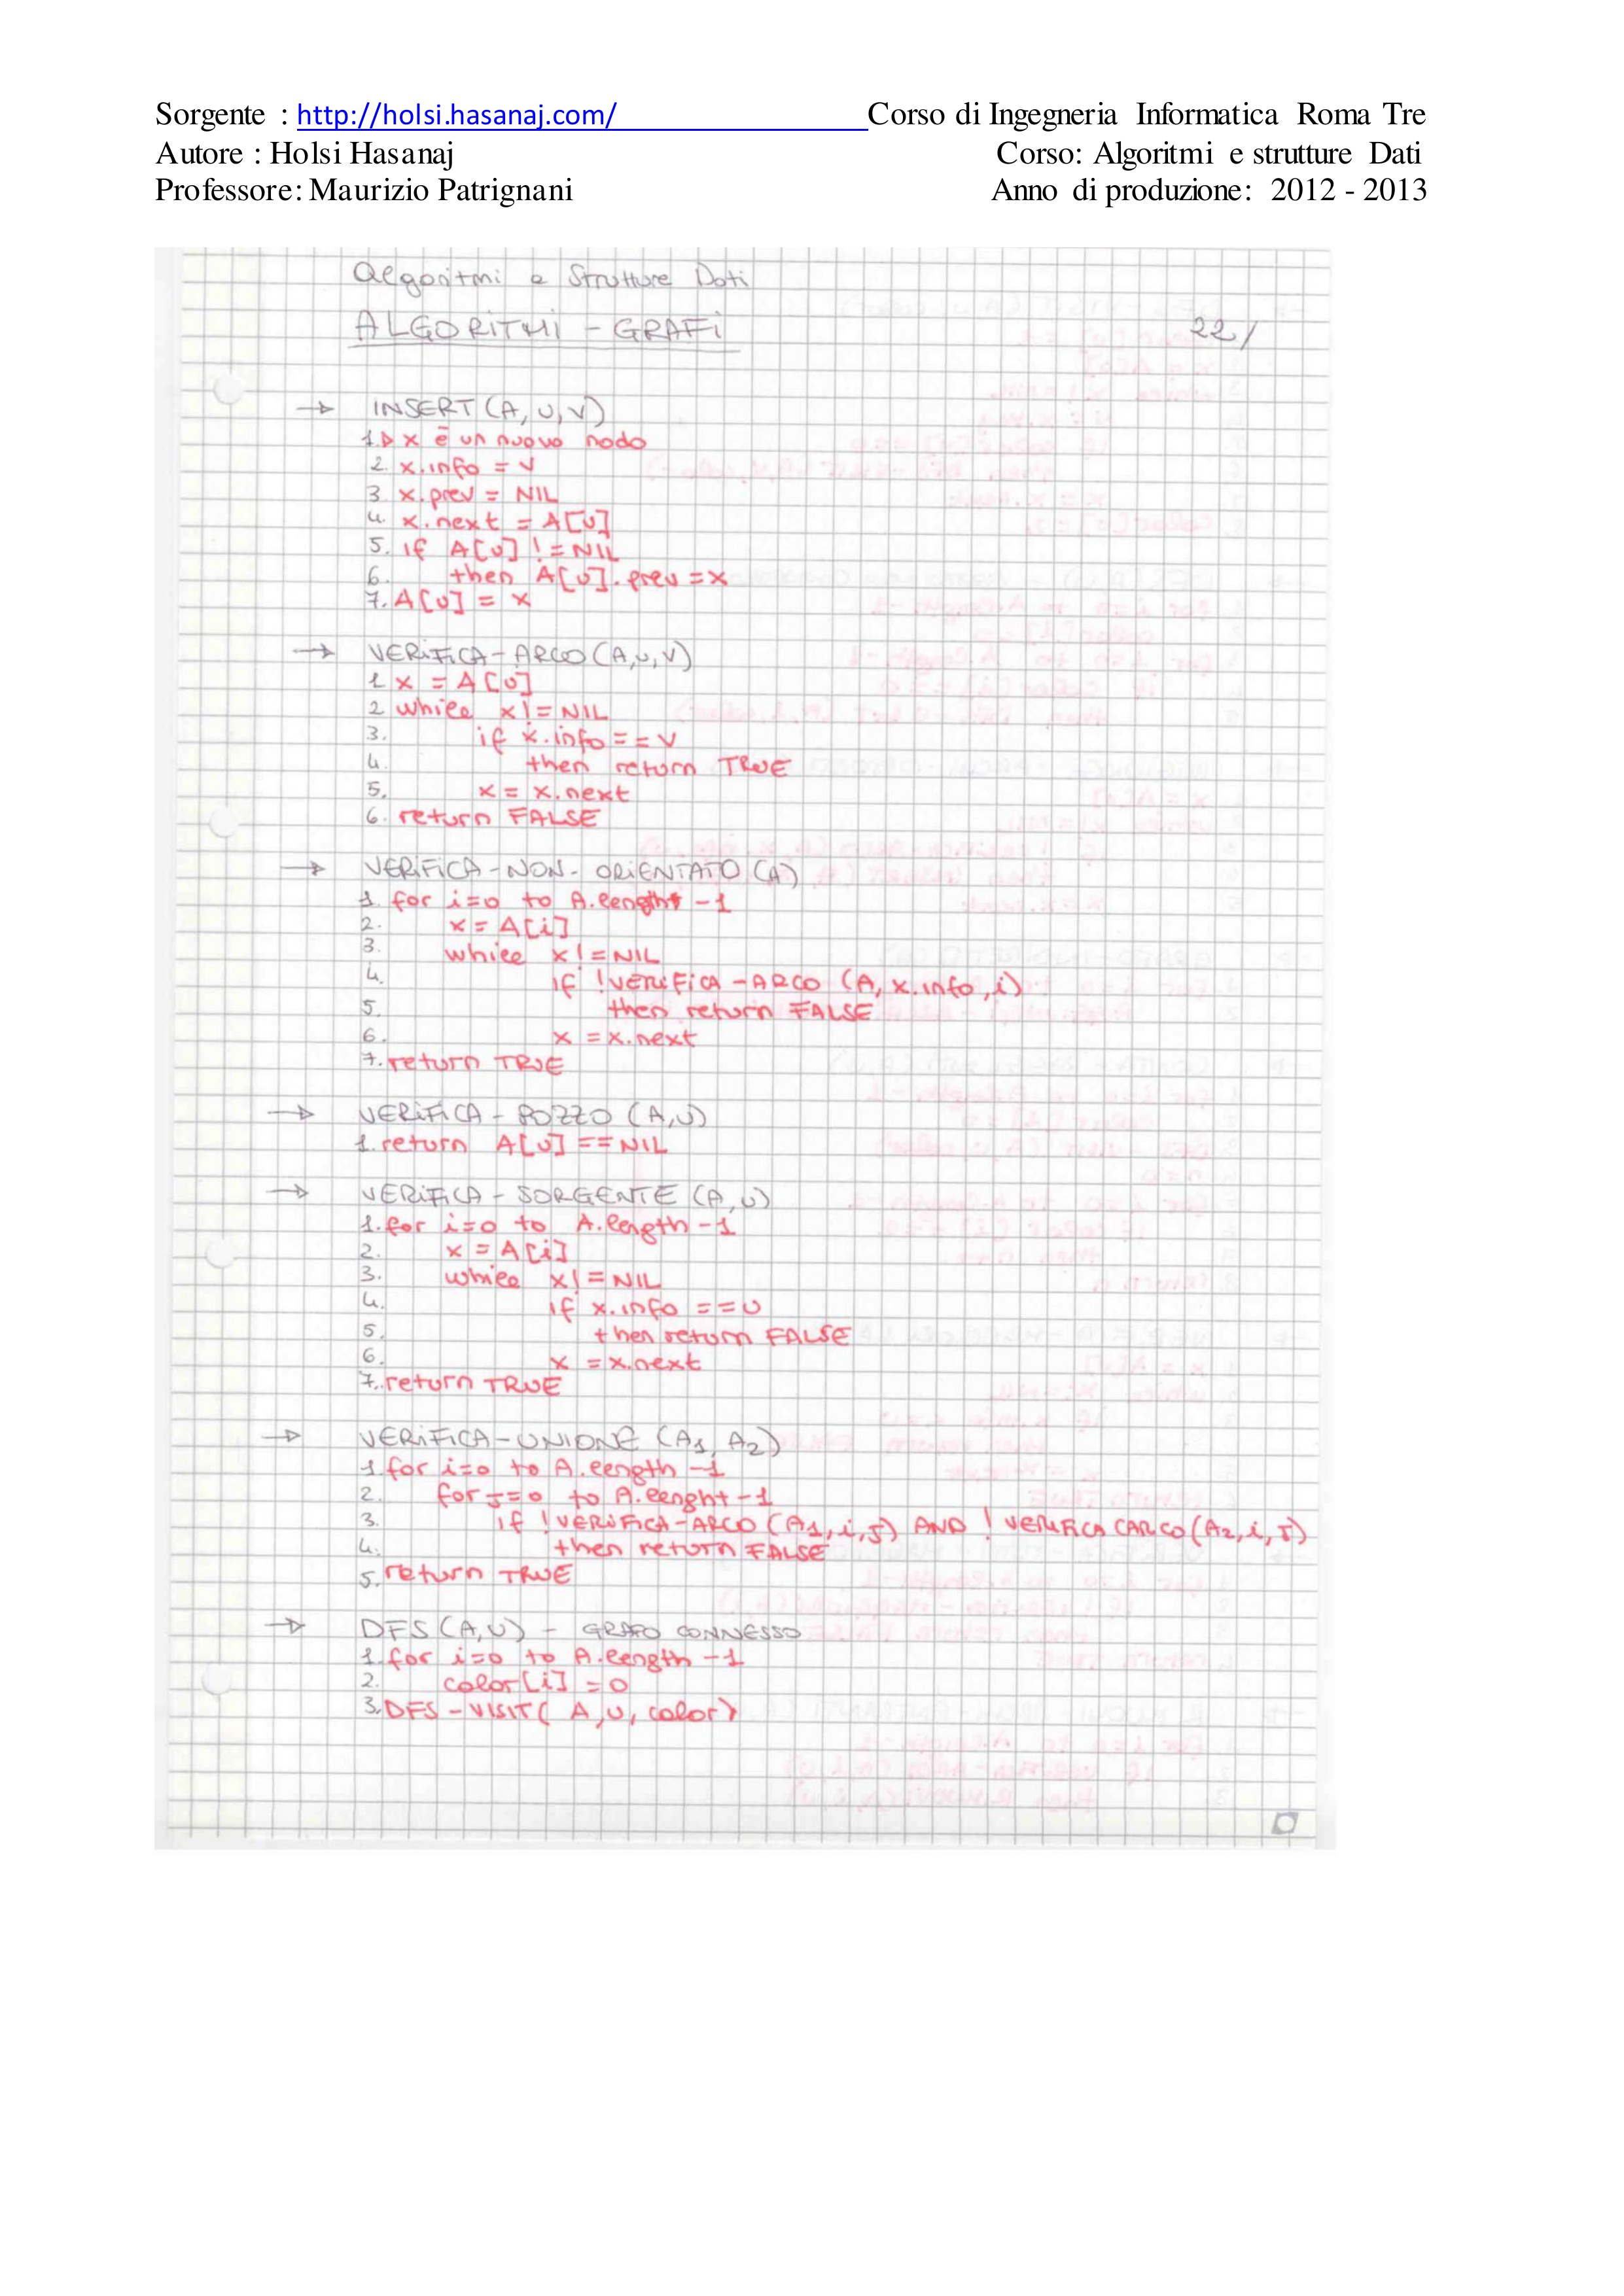 Sorgente : http://holsi.hasanaj.com/ Corso di Ingegneria Informatica Roma Tre
Autore : Holsi Hasanaj Corso: Algoritmi e strutture Dati
Professore: Maurizio Patrignani Anno di produzione: 2012 - 2013
Algoritmi e Strutture Dati
ALGORITMI - GRAFI 22/
→ INSERT (A, U, V)
1. ▷ x è un nuovo nodo
2. x.info = v
3 x.prev = NIL
4. x.next = A[u]
5. if A[u] != NIL
6. then A[u].prev = x
7. A[u] = x
→ VERIFICA - ARCO (A, u, V)
1 x = A[u]
2 while x != NIL
3. if x.info == v
4. then return TRUE
5. x = x.next
6. return FALSE
→ VERIFICA - NON - ORIENTATO (A)
1. for i=0 to A.length -1
2. x = A[i]
3. while x != NIL
4. if !VERIFICA - ARCO (A, x.info, i)
5. then return FALSE
6. x = x.next
7. return TRUE
→ VERIFICA - POZZO (A, U)
1. return A[u] == NIL
→ VERIFICA - SORGENTE (A, U)
1. for i=0 to A.length -1
2. x = A[i]
3. while x != NIL
4. if x.info == U
5. then return FALSE
6. x = x.next
7. return TRUE
→ VERIFICA - UNIONE (A1, A2)
1. for i=0 to A.length -1
2. for J=0 to A.lenght -1
3. if !VERIFICA - ARCO (A1, i, J) AND ! VERIFICA CARCO (A2, i, J)
4. then return FALSE
5. return TRUE
→ DFS (A, U) - GRAFO CONNESSO
1. for i=0 to A.length -1
2. color[i] = 0
3. DFS - VISIT ( A, U, color)